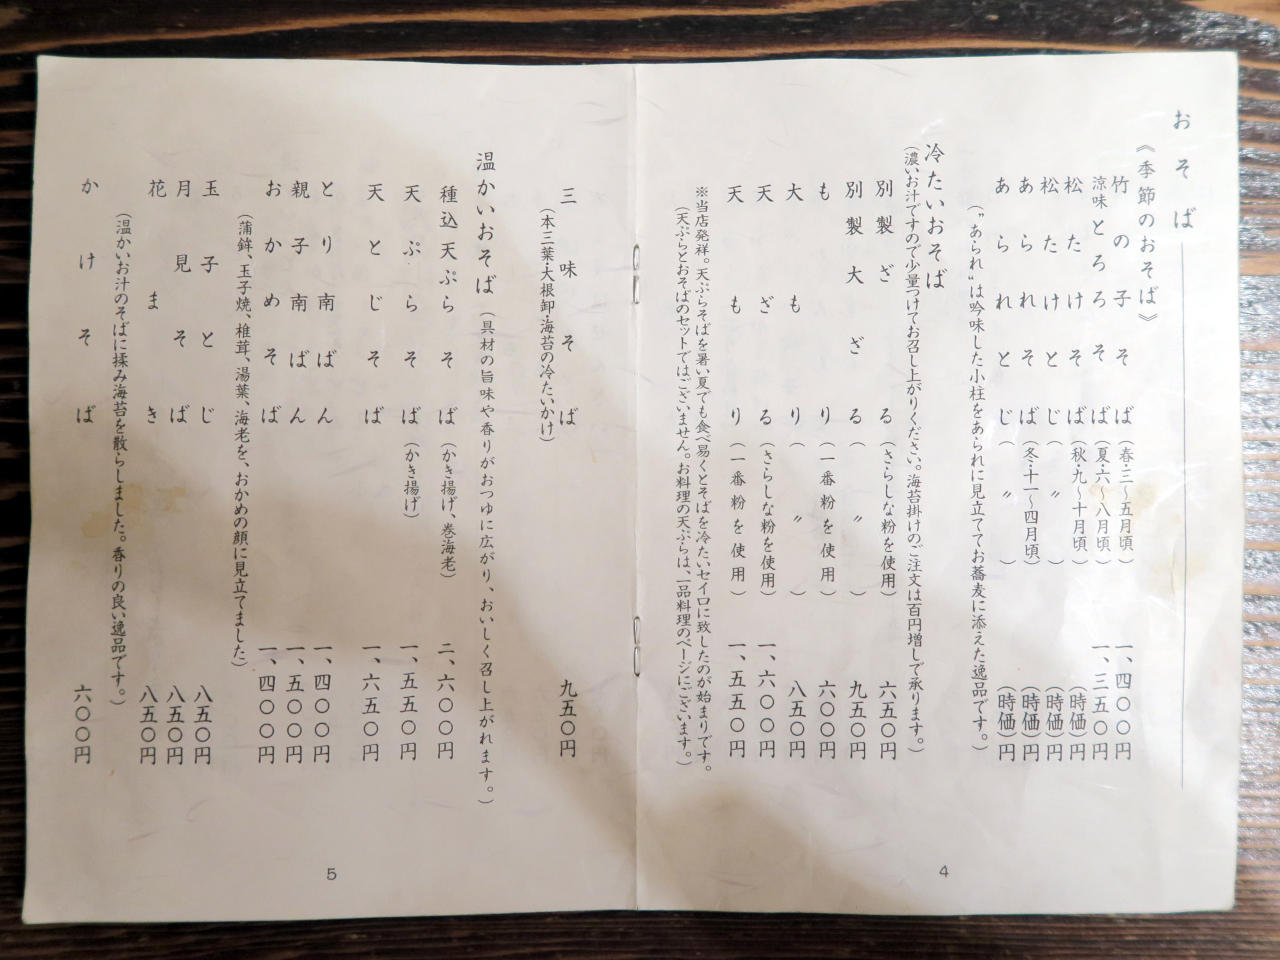 おそば
《季節のおそば》
竹の子そば（春・三〜五月頃） 一、四〇〇円
涼味とろろそば（夏・六〜八月頃） 一、三五〇円
松たけそば（秋・九〜十月頃） （時価）円
松たけとじ（〃） （時価）円
あられそば（冬・十一〜四月頃） （時価）円
あられとじ（〃） （時価）円
（〝あられ〟は吟味した小柱をあられに見立ててお蕎麦に添えた逸品です。）
冷たいおそば
（濃いお汁ですので少量つけてお召し上がりください。海苔掛けのご注文は百円増しで承ります。）
別製ざる（さらしな粉を使用） 六五〇円
別製大ざる（〃） 九五〇円
もり（一番粉を使用） 六〇〇円
大もり（〃） 八五〇円
天ざる（さらしな粉を使用） 一、六〇〇円
天もり（一番粉を使用） 一、五五〇円
※当店発祥。天ぷらそばを暑い夏でも食べ易くとそばを冷たいセイロに致したのが始まりです。
（天ぷらとおそばのセットではございません。お料理の天ぷらは、一品料理のページにございます。）
4
三味そば 九五〇円
（本三葉・大根卸・海苔の冷たいかけ）
温かいおそば（具材の旨味や香りがおつゆに広がり、おいしく召し上がれます。）
種込天ぷらそば（かき揚げ、巻海老） 二、六〇〇円
天ぷらそば（かき揚げ） 一、五五〇円
天とじそば 一、六五〇円
とり南ばん 一、四〇〇円
親子南ばん 一、五〇〇円
おかめそば 一、四〇〇円
（蒲鉾、玉子焼、椎茸、湯葉、海老を、おかめの顔に見立てました）
玉子とじ 八五〇円
月見そば 八五〇円
花まき 八五〇円
（温かいお汁のそばに揉み海苔を散らしました。香りの良い逸品です。）
かけそば 六〇〇円
5